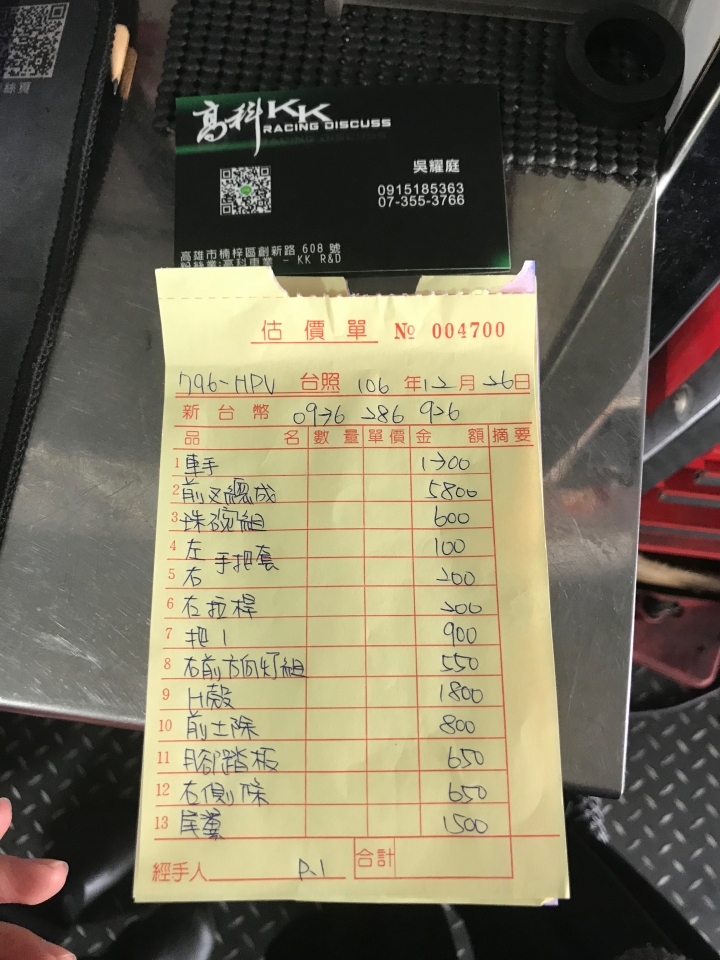 絲頁
高科KK
RACING DISCUSS
吳耀庭
0915185363
07-355-3766
高雄市楠梓區創新路 608 號
粉絲業:高科車業 - KK R&D
估價單 № 004700
796-HPV 台照 106 年 12 月 26 日
新台幣 0976 286 926
品名 數量 單價 金額 摘要
1 車手 1700
2 前叉總成 5800
3 珠碗組 600
4 左 手把套 100
5 右 200
6 右拉桿 200
7 把1 900
8 右前方向灯組 550
9 H殼 1800
10 前土除 800
11 腳踏板 650
12 右側條 650
13 尾蓋 1500
經手人 P.1 合計